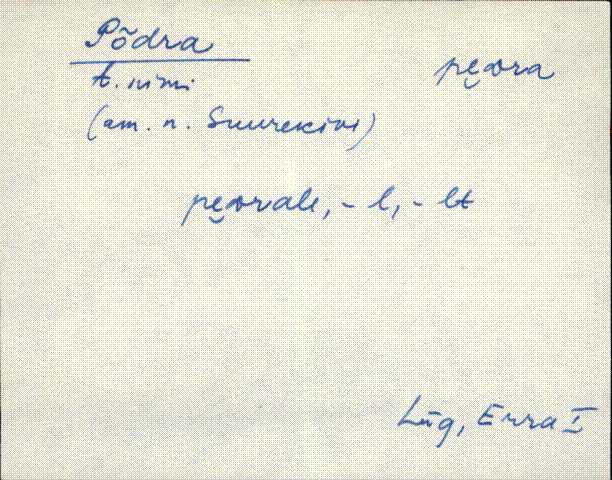 Põdra
pe̮ᴅra
t. nimi
(am. n. Suurekivi)
pe̮ᴅrale, -l, -lt
Lüg, Erra I